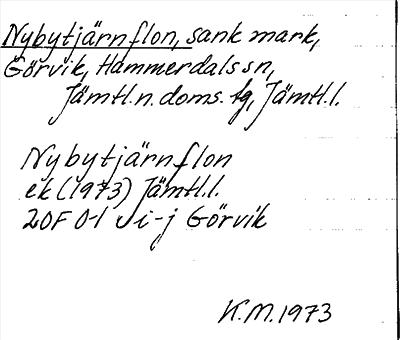 Nybytjärnflon, sank mark,
Görvik, Hammerdals sn,
Jämtl.n.doms. tg, Jämtl.l.
Nybytjärnflon
ek (1973) Jämtl.l.
20F 0-1 i-j Görvik
K.M.1973